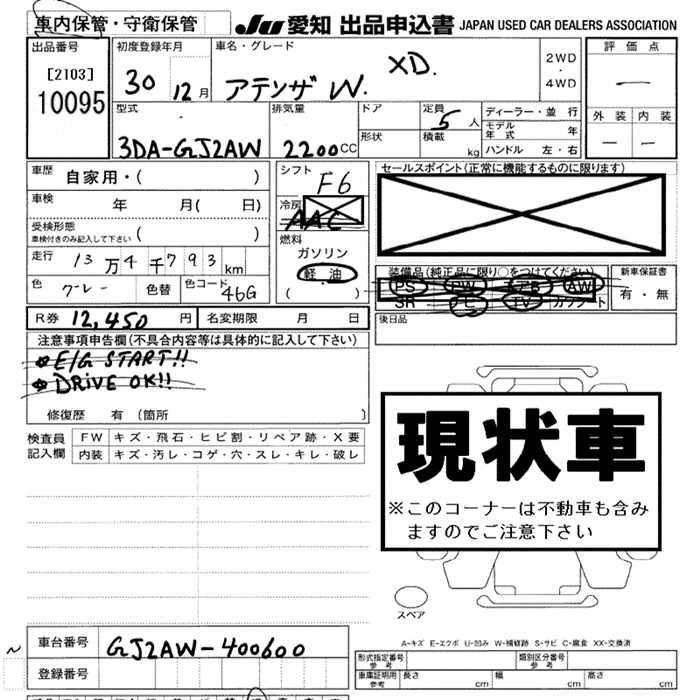 車内保管・守衛保管
JU 愛知 出品申込書 JAPAN USED CAR DEALERS ASSOCIATION
出品番号
[2103]
10095
初度登録年月
30 12月
車名・グレード
アテンザ W. XD.
2WD
・
4WD
評価点
—
外装 内装
— —
型式
3DA-GJ2AW
排気量
2200CC
ドア
形状
定員
5人
積載
kg
ディーラー・並行
モデル年式 年
ハンドル 左・右
車歴
自家用・( )
車検
年 月( 日)
受検形態
車検付きのみ記入して下さい ( )
走行 13万4千793km
色 グレー 色替 色コード 46G
シフト
F6
冷房
AAC
燃料
ガソリン
軽油
( )
セールスポイント(正常に機能するものに限ります)
装備品(純正品に限り○をつけてください)
PS PW AB AW
SR TV カワシート
新車保証書
有・無
後日品
R券 12,450円 名変期限 月 日
注意事項申告欄(不具合内容等は具体的に記入して下さい)
E/G START!!
DRIVE OK!!
修復歴 有(箇所 )
検査員記入欄
FW キズ・飛石・ヒビ割・リペア跡・X要
内装 キズ・汚レ・コゲ・穴・スレ・キレ・破レ
現状車
※このコーナーは不動車も含み
ますのでご注意下さい
スペア
A-キズ E-エクボ U-凹み W-補修跡 S-サビ C-腐食 XX-交換済
車台番号 GJ2AW-400600
登録番号
形式指定番号 参考
類別区分番号 参考
車庫証明用 参考 長さ cm 幅 cm 高さ cm